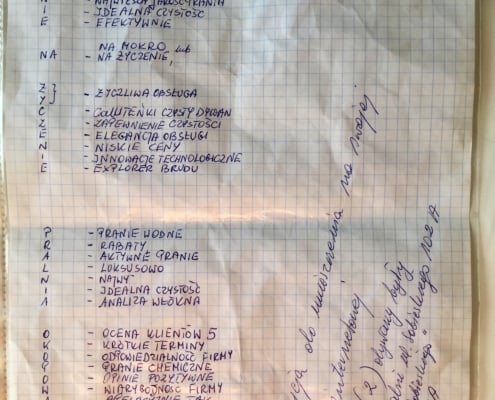 N - NAJWYŻSZA JAKOŚĆ PRANIA
I - IDEALNA CZYSTOŚĆ
E - EFEKTYWNIE
NA - NA MOKRO, lub
- NA ŻYCZENIE,
Z - ŻYCZLIWA OBSŁUGA
Y
C - CALUTEŃKI CZYSTY DYWAN
Z - ZAPEWNIENIE CZYSTOŚCI
E - ELEGANCJA OBSŁUGI
N - NISKIE CENY
I - INNOWACJE TECHNOLOGICZNE
E - EXPLORER BRUDU
P - PRANIE WODNE
R - RABATY
A - AKTYWNE PRANIE
L - LUKSUSOWO
N - NAJWY
I - IDEALNA CZYSTOŚĆ
A - ANALIZA WŁÓKNA
O - OCENA KLIENTÓW 5
K - KRÓTKIE TERMINY
O - ODPOWIEDZIALNOŚĆ FIRMY
P - PRANIE CHEMICZNE
O - OPINIE POZYTYWNE
W - WIARYGODNOŚĆ FIRMY
do umieszczenia na swojej
internetowej
2) używany były
102 A